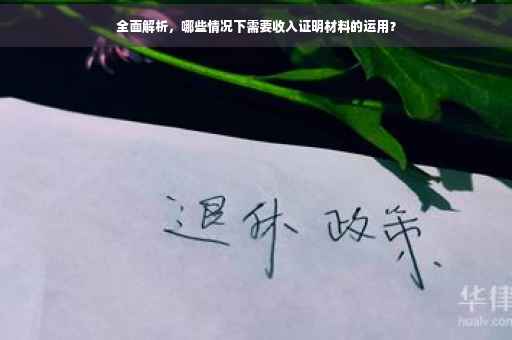 全面解析，哪些情况下需要收入证明材料的运用？
退休 政策
华律
hualv.com